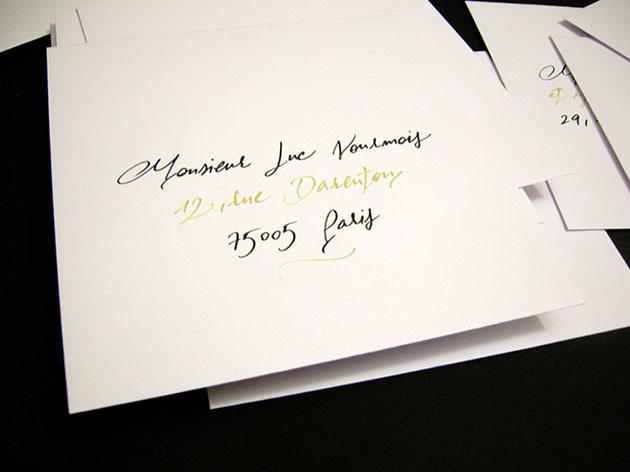 Monsieur Luc Vourmois
12, rue Darentoy
75005 Paris
29,